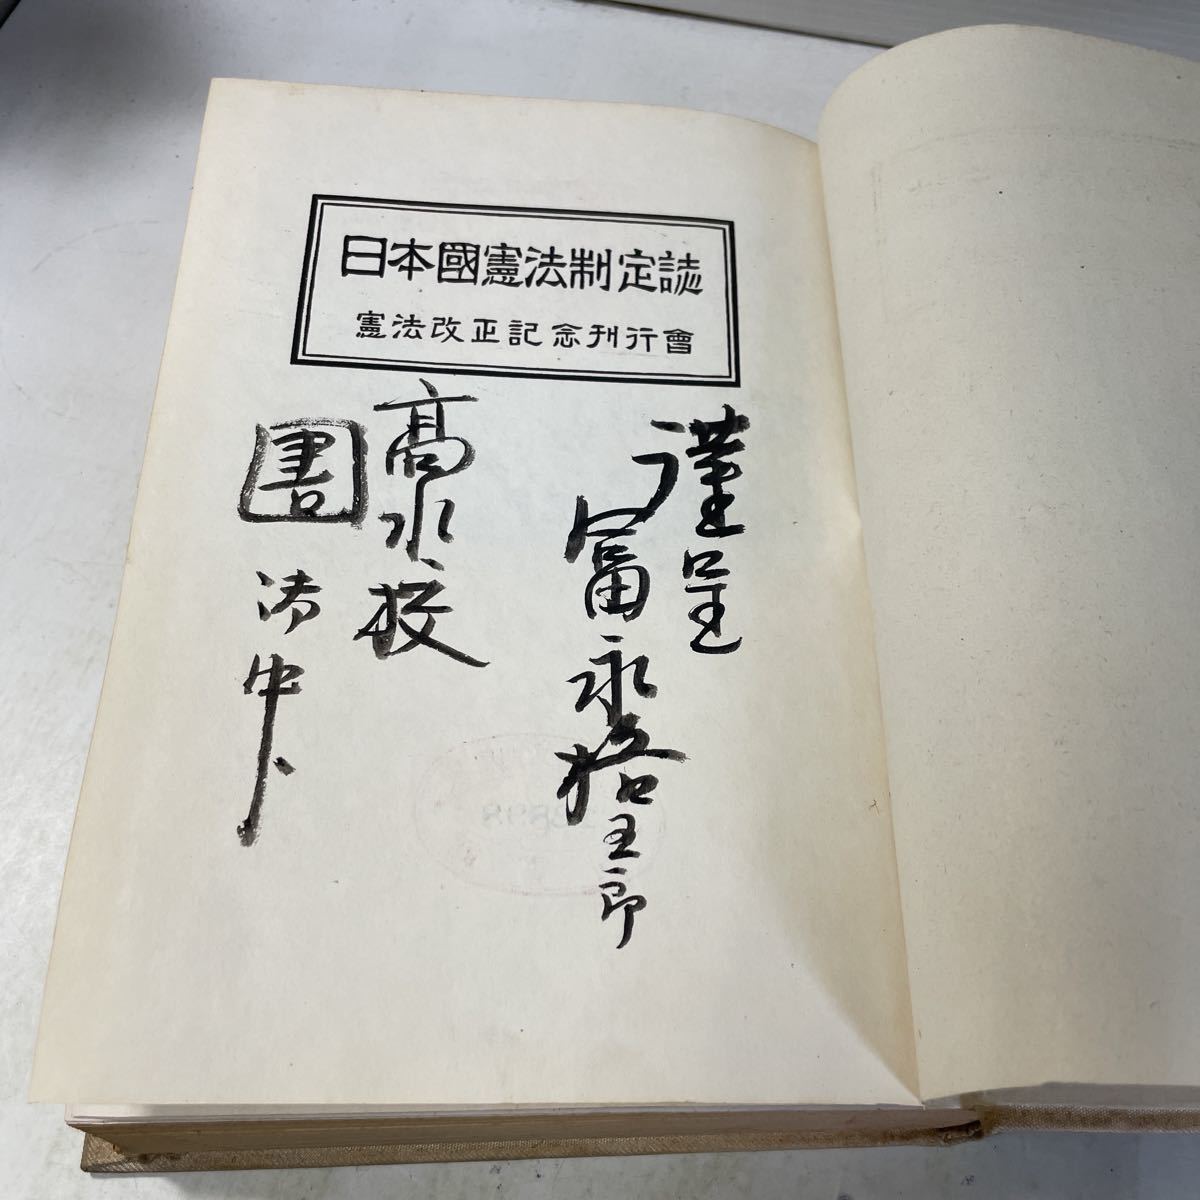 日本國憲法制定誌
憲法改正記念刊行會
謹呈
冨永格五郎
高水校
圕御中